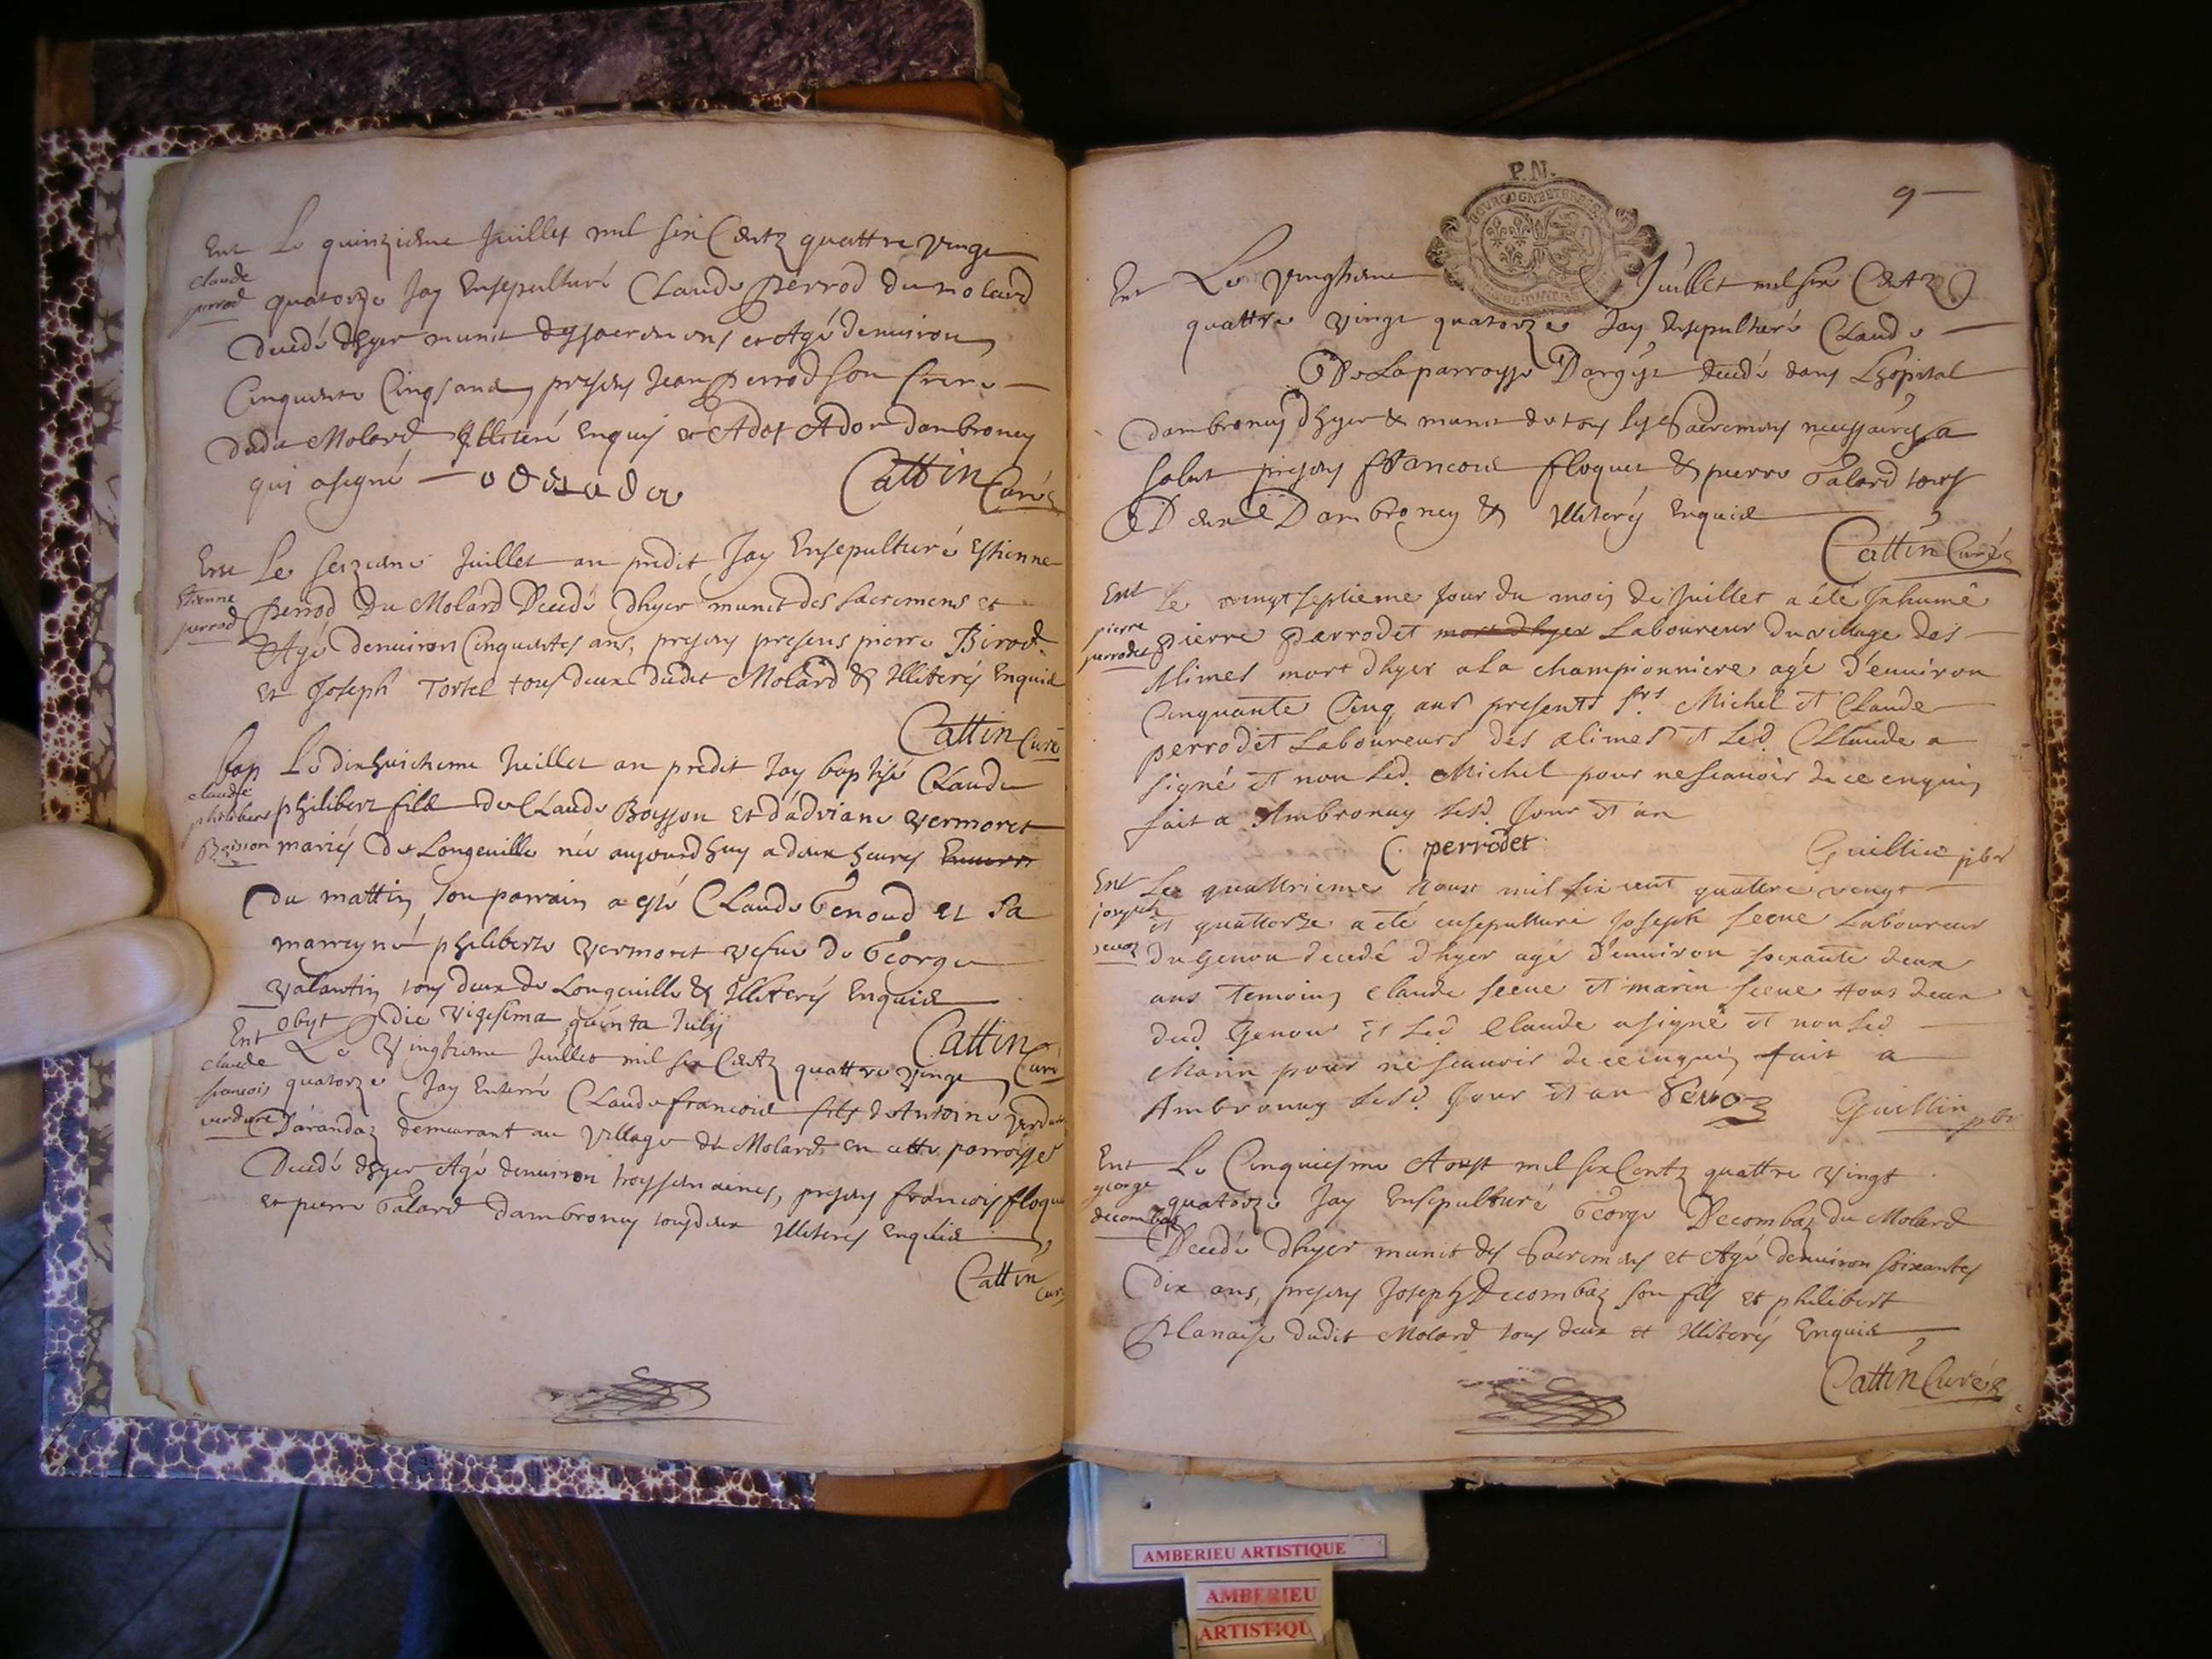 Ent Le quinzieme Juillet mil six Centz quattre vingt
claude perrod
quatorze Jay Ensepulturé Claude Perrod du molard
Decedé dhyer munit des sacremens et Agé denuiron
Cinquante Cinqs ans, presens Jean Perrod son frere
dudit Molard Illiteré Enquis et Adot Ador dambronay
qui a signé
Cattin Curé
Ent Le seizieme Juillet an predit Jay Ensepulturé Estienne
Etienne perrod
Perrod Du Molard Decedé dhyer munit des sacremens et
Agé denuiron Cinquantes ans, presens presens pierre Birod
et Joseph Tortel tous deux dudit Molard & Illiterés Enquis
Cattin Curé
bap Le dixhuictieme Juillet an predit Jay baptisé Claude
claude philibert Boisson
philibert fils de Claude Boysson et dadriane vermoret
mariés de Longeuille née aujourdhuy a deux heures
Du mattin son parrain a esté Claude Genoud et sa
marreyne philiberte vermoret vefue de George
valantin tous deux de Longeuille & Illiterés Enquis
Cattin Curé
obyt die vigesima quinta Julij
Ent Le vingtieme Juillet mil six Centz quattre vingt
claude francois verdure
quatorze Jay Enterré Claude francois fils de Antoine
Darandaz demeurant au village du Molard en cette parroisse
Decedé dhyer Agé denuiron troys semaines, presens francois
et pierre Galard dambronay tous deux Illiterés Enquis
Cattin Curé
P.N.
9
Ent Le vingtieme Juillet mil six Centz
quattre vingt quatorze Jay Ensepulturé Claude
De La parroysse Dargis decedé dans Lhopital
dambronay dhyer & munit de tous les Sacremens necessaires a
salut presens francois floquet & pierre Galard tous
Deux Dambronay & Illiterés Enquis
Cattin Curé
Ent Le vingt septieme jour du mois de Juillet a été Inhumé
pierre perrodet
Pierre Perrodet mort dhyer Laboureur du village des
Alimes mort dhyer a La championniere agé d'enuiron
Cinquante Cinq ans presents Srs Michel et Claude
perrodet Laboureurs des alimes et Led. Claude a
signé et non Led. Michel pour ne scauoir de ce enquis
fait a Ambronay Lesd. Jour et an
C. perrodet
Guillin pbr
Ent Le quattrieme Aoust mil six cent quattre vengt
joseph
et quattorze a été ensepulturé Joseph seeue Laboureur
du Genou decedé dhyer agé d'enuiron soixante deux
ans temoins claude seeue et marin seeue tous deux
dud. Genou et Led. Claude a signé et non Led.
Marin pour ne scauoir de ce enquis fait a
Ambronay Lesd. Jour et an
Guillin pbr
Ent Le Cinquiesme Aoust mil six Centz quattre vingt
george decombaz
quatorze Jay Ensepulturé George Decombaz du Molard
Decedé dhyer munit des Sacremens et Agé denuiron soixantes
dix ans, presens Joseph Decombaz son fils et philibert
Planaise dudit Molard tous deux et Illiterés Enquis
Cattin Curé
AMBERIEU ARTISTIQUE
AMBERIEU
ARTISTIQU